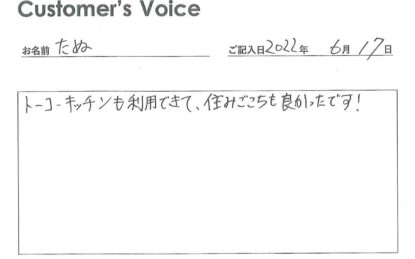 Customer's Voice
お名前 たぬ ご記入日2022年 6月17日
トーコーキッチンも利用できて、住みごこちも良かったです!